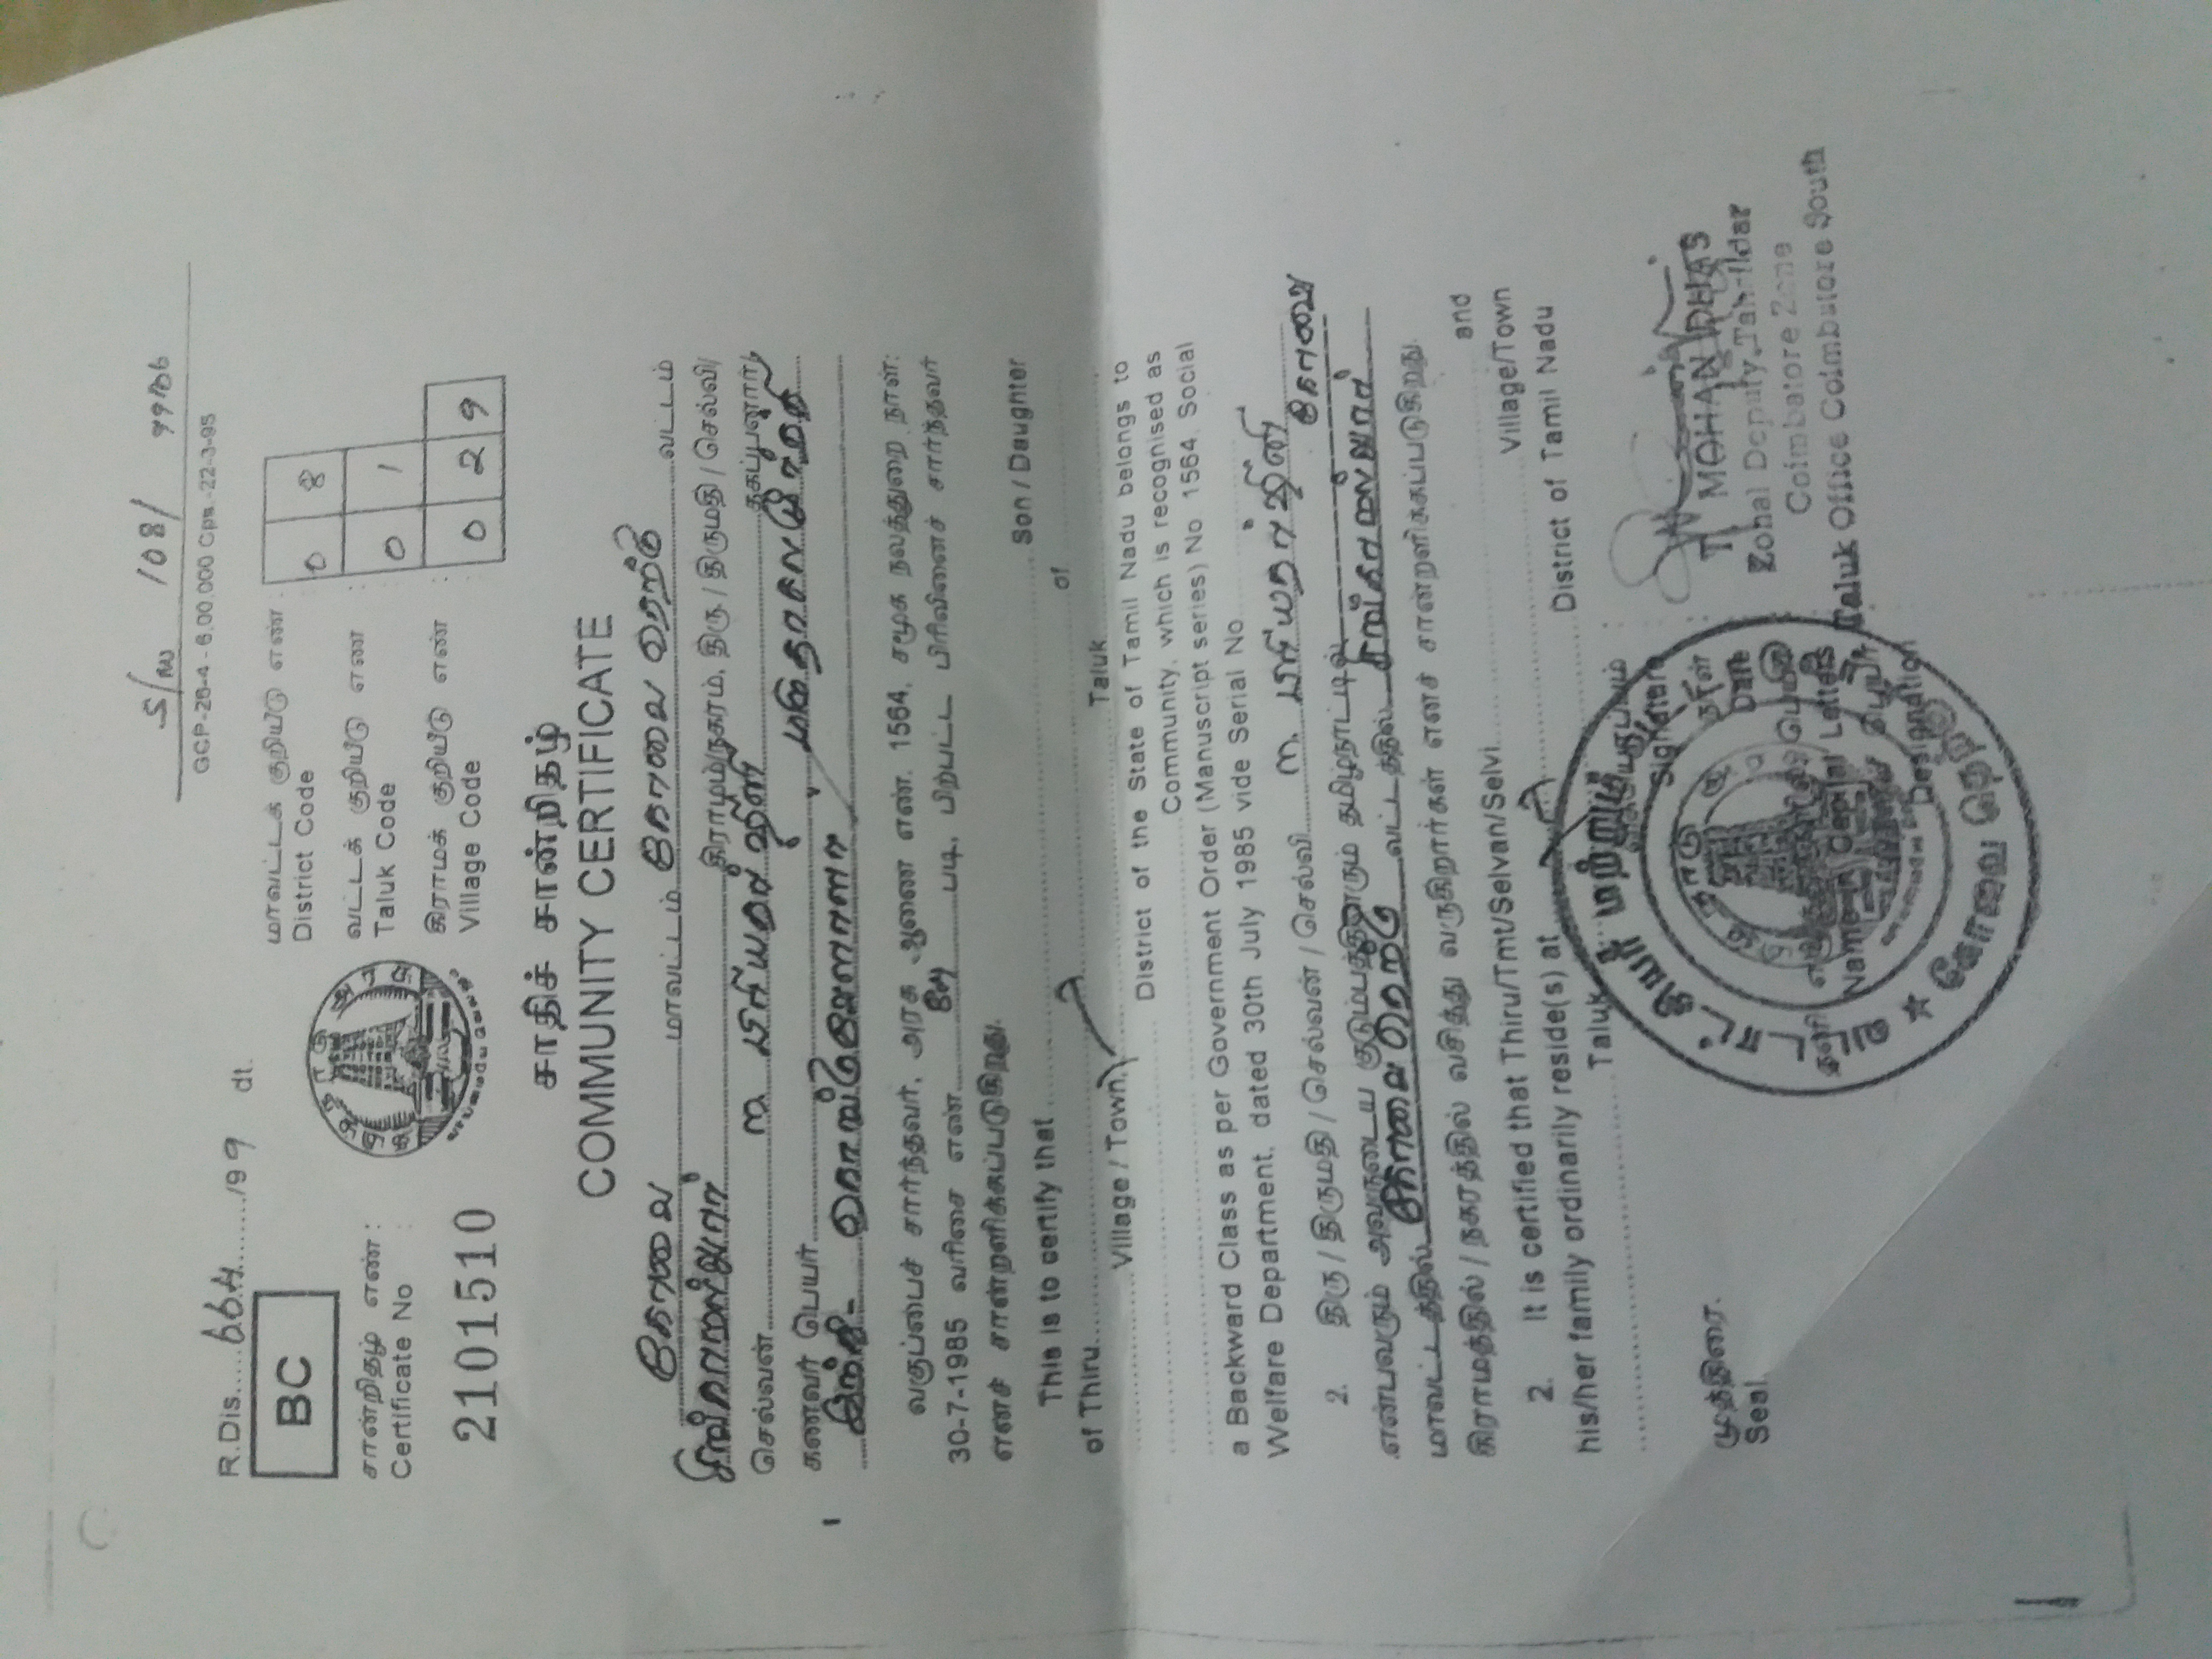 S/W 108/ 99/06
GCP-26-4 - 6,00,000 Cps.-22-3-95
R.Dis.....664....../99 dt.
BC
மாவட்டக் குறியீடு எண் :
District Code
0 8
வட்டக் குறியீடு எண் :
Taluk Code
0 1
கிராமக் குறியீடு எண் :
Village Code
0 2 9
சான்றிதழ் எண் :
Certificate No
2101510
சாதிச் சான்றிதழ்
COMMUNITY CERTIFICATE
கோவை மாவட்டம் கோவை தெற்கு வட்டம்
கிராமம்/நகரம், திரு / திருமதி / செல்வி/
செல்வன் ம. பிரியதர்ஷினி தகப்பனார்/
கணவர் பெயர்
இந்து
வகுப்பைச் சார்ந்தவர். அரசு ஆணை எண். 1564, சமூக நலத்துறை நாள்:
30-7-1985 வரிசை எண் படி, பிற்பட்ட பிரிவினைச் சார்ந்தவர்
எனச் சான்றளிக்கப்படுகிறது.
This is to certify that Son / Daughter
of Thiru of
Village / Town Taluk
District of the State of Tamil Nadu belongs to
Community, which is recognised as
a Backward Class as per Government Order (Manuscript series) No 1564, Social
Welfare Department, dated 30th July 1985 vide Serial No
2. திரு / திருமதி / செல்வன் / செல்வி ம. பிரியதர்ஷினி
என்பவரும் அவருடைய குடும்பத்தாரும் தமிழ்நாட்டில் கோவை
மாவட்டத்தில் கோவை தெற்கு வட்டத்தில்
கிராமத்தில் / நகரத்தில் வசித்து வருகிறார்கள் எனச் சான்றளிக்கப்படுகிறது.
2. It is certified that Thiru/Tmt/Selvan/Selvi and
his/her family ordinarily reside(s) at Village/Town
Taluk District of Tamil Nadu
Signature
நாள்
Date
Name in Capital Letters
Designation
T. MOHAN DHAS
Zonal Deputy Tahsildar
Coimbatore Zone
Taluk Office Coimbatore South
முத்திரை.
Seal.